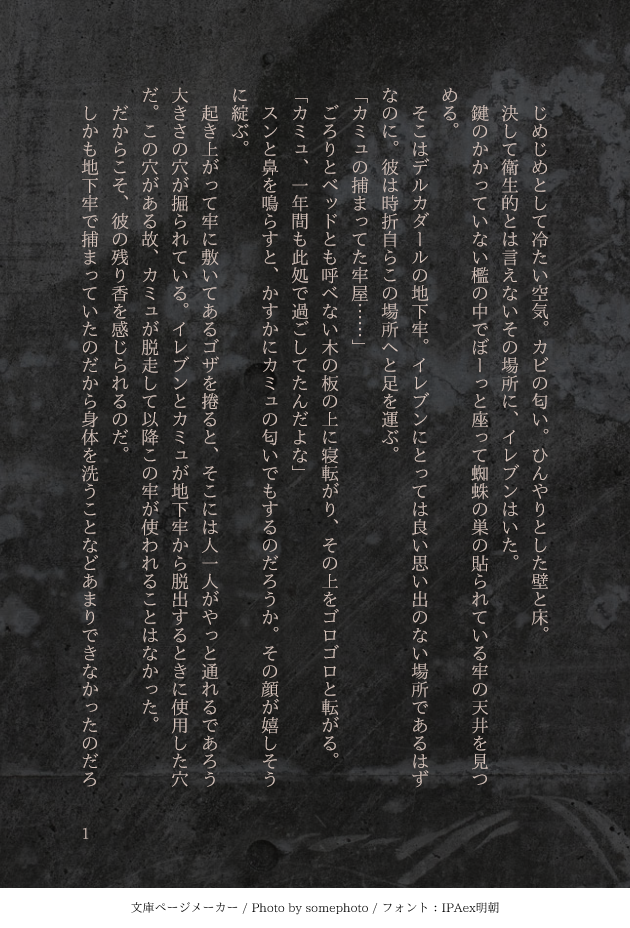 じめじめとして冷たい空気。カビの匂い。ひんやりとした壁と床。
決して衛生的とは言えないその場所に、イレブンはいた。
鍵のかかっていない檻の中でぼーっと座って蜘蛛の巣の貼られている牢の天井を見つ
める。
そこはデルカダールの地下牢。イレブンにとっては良い思い出のない場所であるはず
なのに。彼は時折自らこの場所へと足を運ぶ。
「カミュの捕まってた牢屋……」
ごろりとベッドとも呼べない木の板の上に寝転がり、その上をゴロゴロと転がる。
「カミュ、一年間も此処で過ごしてたんだよな」
スンと鼻を鳴らすと、かすかにカミュの匂いでもするのだろうか。その顔が嬉しそう
に綻ぶ。
起き上がって牢に敷いてあるゴザを捲ると、そこには人一人がやっと通れるであろう
大きさの穴が掘られている。イレブンとカミュが地下牢から脱出するときに使用した穴
だ。この穴がある故、カミュが脱走して以降この牢が使われることはなかった。
だからこそ、彼の残り香を感じられるのだ。
しかも地下牢で捕まっていたのだから身体を洗うことなどあまりできなかったのだろ
1
文庫ページメーカー / Photo by somephoto / フォント：IPAex明朝